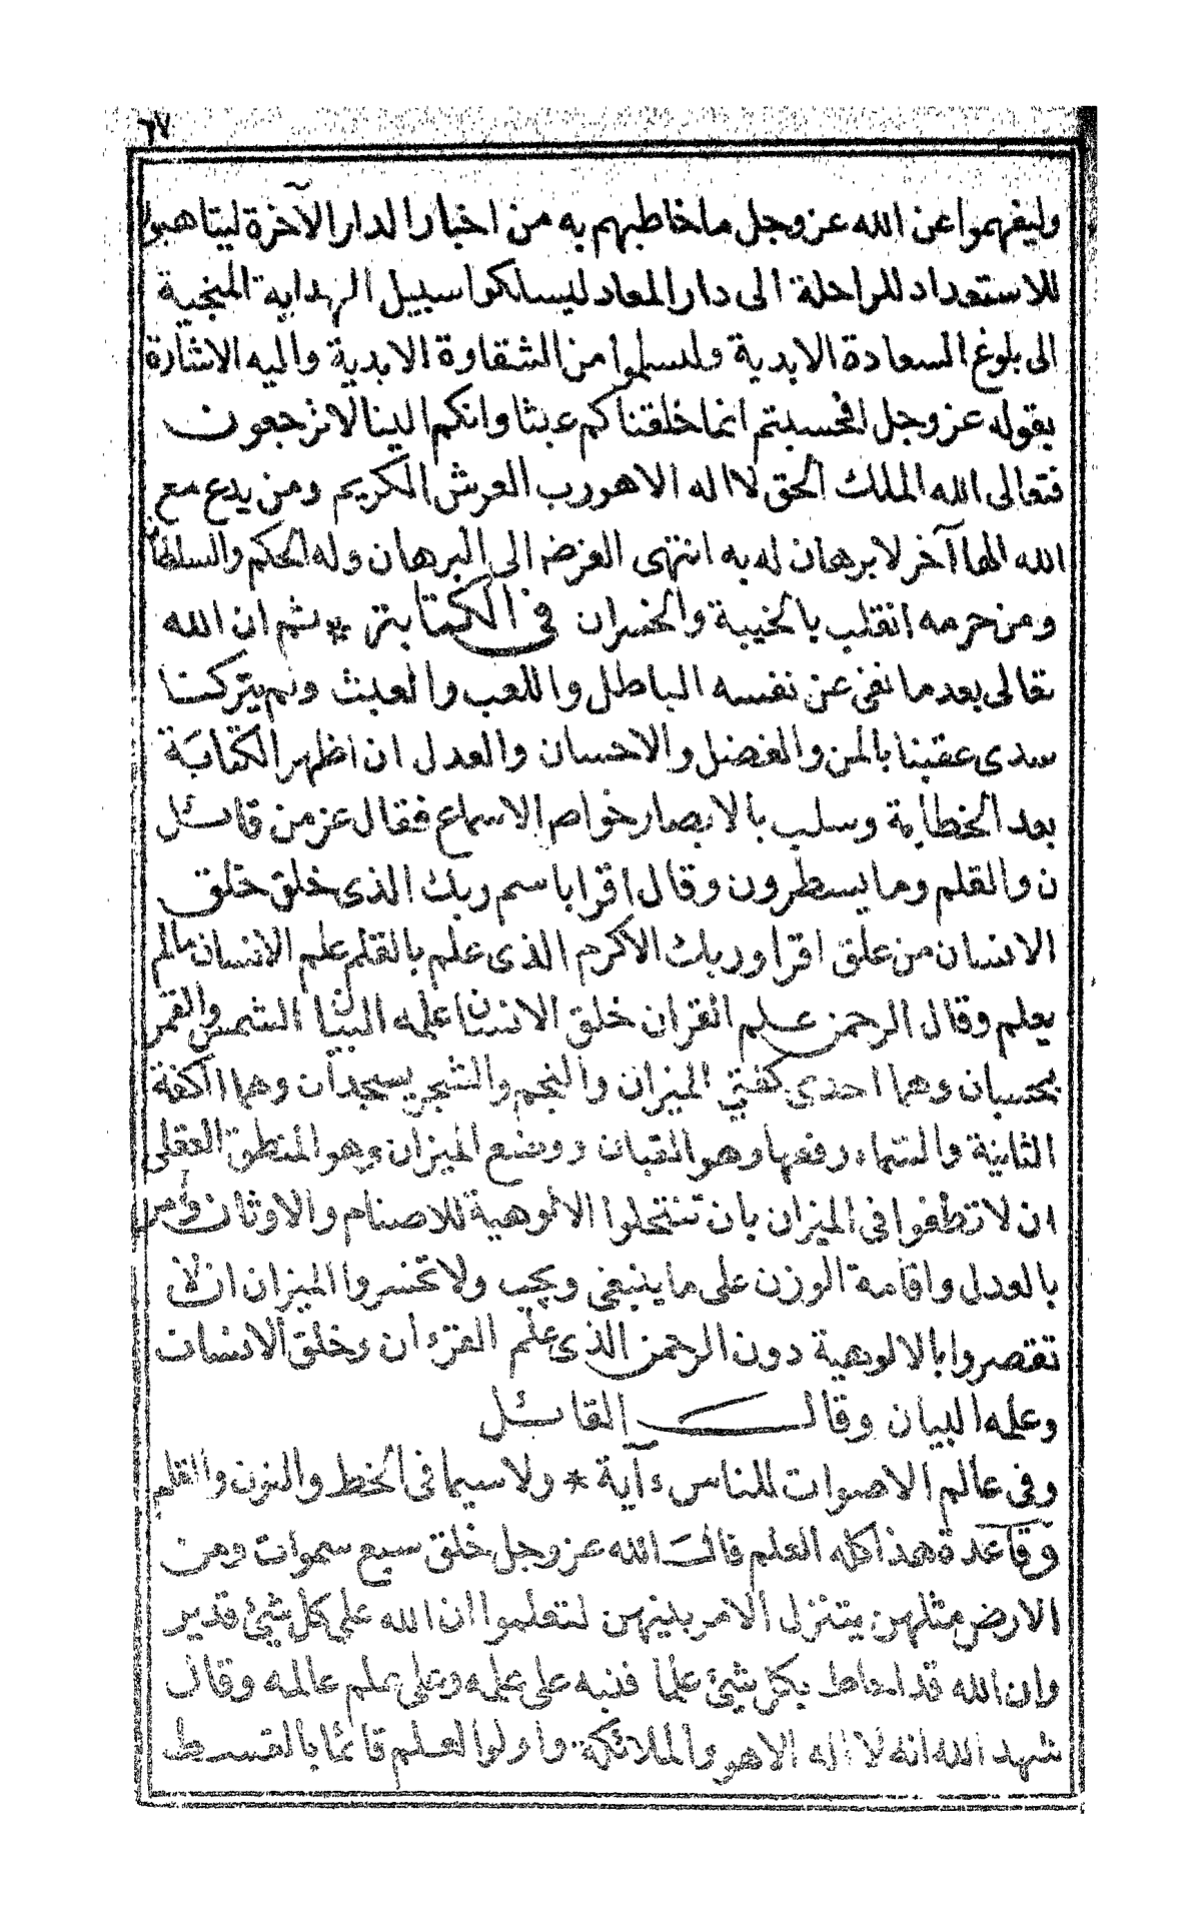 ٦٧
وليفهموا عن الله عز وجل ما خاطبهم به من اخبار الدار الآخرة ليتاهبوا
للاستعداد للراحلة الى دار المعاد ليسلكوا سبيل الهداية المنجية
الى بلوغ السعادة الابدية وليسلموا من الشقاوة الابدية واليه الاشارة
بقوله عز وجل افحسبتم انما خلقناكم عبثا وانكم الينا لا ترجعون
فتعالى الله الملك الحق لا اله الا هو رب العرش الكريم ومن يدع مع
الله الها آخر لا برهان له به انتهى الغرض الى البرهان وله الحكم والسلطان
ومن حرمه انقلب بالخيبة والخسران في الكتابة * ثم ان الله
تعالى بعد ما نفى عن نفسه الباطل واللعب والعبث ولم يتركنا
سدى عقبنا بالمن والفضل والاحسان والعدل ان اظهر الكتابة
بعد الخطابة وسلب بالابصار خواص الاسماع فقال عز من قائل
ن والقلم وما يسطرون وقال اقرا باسم ربك الذى خلق خلق
الانسان من علق اقرا وربك الاكرم الذى علم بالقلم علم الانسان مالم
يعلم وقال الرحمن علم القران خلق الانسان علمه البيان الشمس والقمر
بحسبان وهما احدى كفتي الميزان والنجم والشجر يسجدان وهما الكفة
الثانية والسماء رفعها وهو القبان ووضع الميزان وهو المنطق العقلى
ان لا تطغوا فى الميزان بان تنتحلوا الالوهية للاصنام والاوثان وأمر
بالعدل واقامة الوزن على ما ينبغى ويجب ولا تخسروا الميزان ان لا
تقصروا بالالوهية دون الرحمن الذى علم القرءان وخلق الانسان
وعلمه البيان وقال القائل
وفى عالم الاصوات للناس ءآية * ولا سيما فى الخط والنون والقلم
وقاعدة هذا كله العلم قال الله عز وجل خلق سبع سموات ومن
الارض مثلهن يتنزل الامر بينهن لتعلموا ان الله على كل شئ قدير
وان الله قد احاط بكل شئ علما فنبه على علمه وعلى علم عالمه وقال
شهد الله انه لا اله الا هو والملائكة واولوا العلم قائما بالقسط